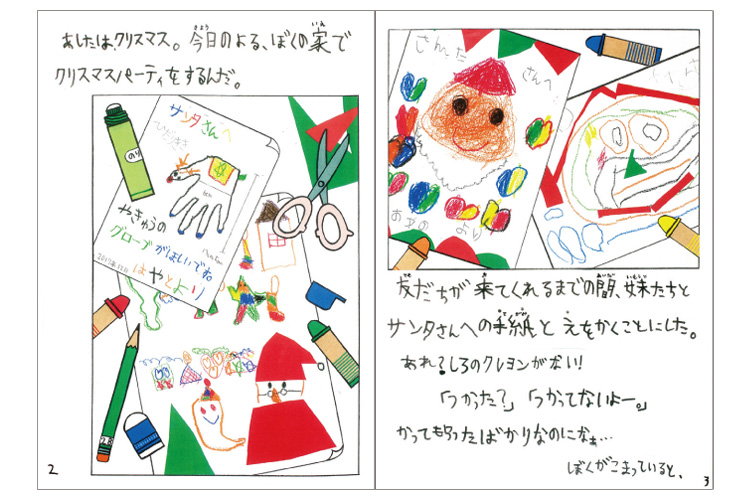 あしたは、クリスマス。今日のよる、ぼくの家で
クリスマスパーティをするんだ。
のり
サンタさんへ
やきゅうの
グローブがほしいです。
はやとより
2B
2
さんた
さんへ
より
友だちが来てくれるまでの間、妹たちと
サンタさんへの手紙とえをかくことにした。
あれ?しろのクレヨンがない!
「つかった?」「つかってないよー。」
かってもらったばかりなのになぁ…
ぼくがこまっていると、
3